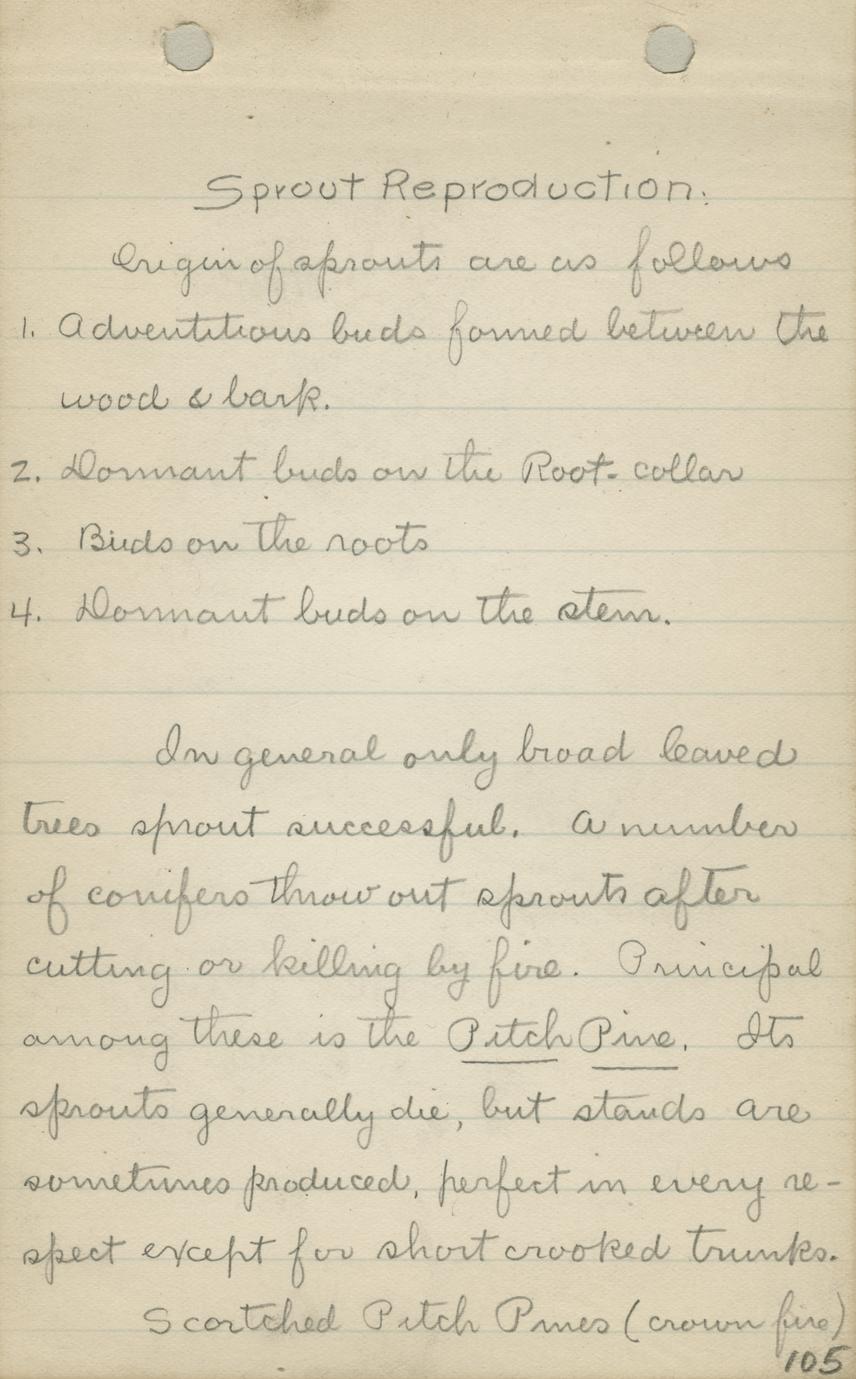 Sprout Reproduction.
Origin of sprouts are as follows
1. Adventitious buds formed between the
wood & bark.
2. Dormant buds on the Root-collar
3. Buds on the roots
4. Dormant buds on the stem.
In general only broad leaved
trees sprout successful. A number
of conifers throw out sprouts after
cutting or killing by fire. Principal
among these is the Pitch Pine. Its
sprouts generally die, but stands are
sometimes produced, perfect in every re-
spect except for short crooked trunks.
Scortched Pitch Pines (crown fire)
105